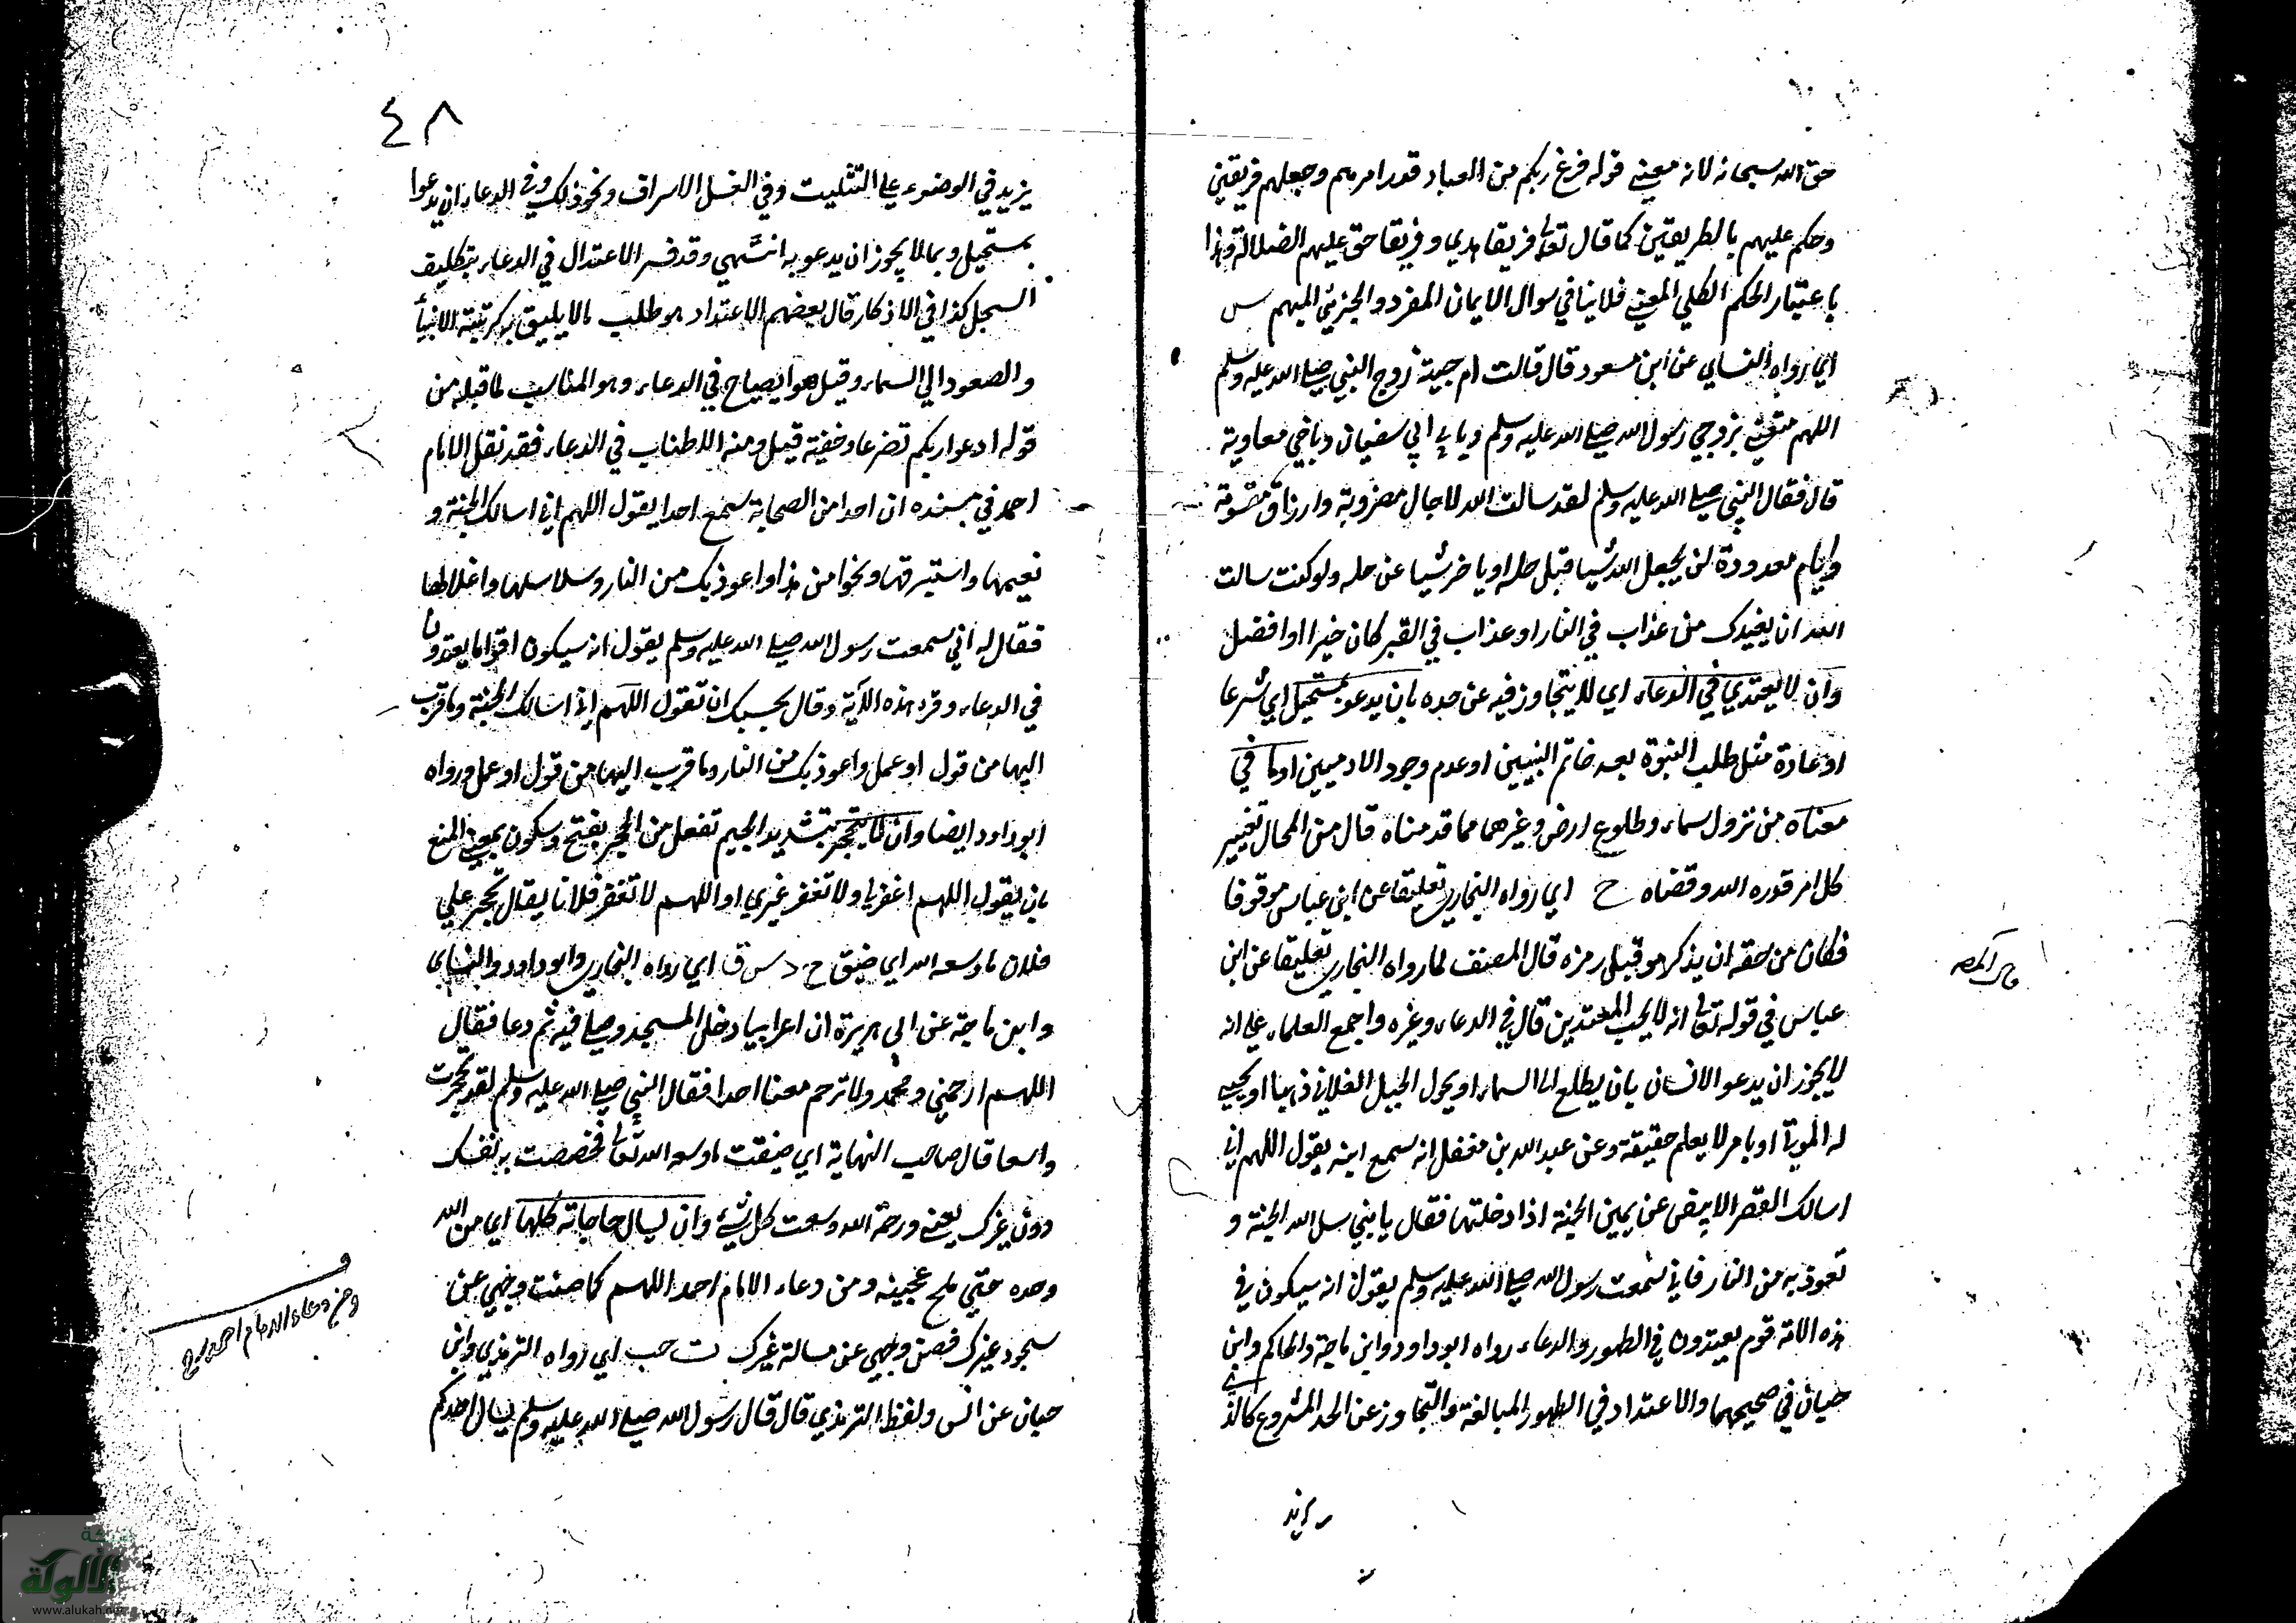 حق الله سبحانه لانه معنى قوله فرغ ربكم من العباد قدر امرهم وجعلهم فريقين
وحكم عليهم بالطريقين كما قال تعالى فريقا هدى وفريقا حق عليهم الضلالة وهذا
باعتبار الحكم الكلي المعين فلا ينافي سوال الايمان المفرد والجزئي المبهم س
اي رواه النساي عن ابن مسعود قال قالت ام حبيبة زوج النبي صلى الله عليه وسلم
اللهم متعني بزوجي رسول الله صلى الله عليه وسلم وبابي ابي سفيان وباخي معاوية
قال فقال النبي صلى الله عليه وسلم لقد سالت الله لاجال مضروبة وارزاق مقسومة
وايام معدودة لن يجعل الله شيا قبل حله او ياخر شيا عن حله ولو كنت سالت
الله ان يعيذك من عذاب في النار او عذاب في القبر كان خيرا او افضل
وان لا يعتدي في الدعاء اي لا يتجاوز فيه عن حده بان يدعو بمستحيل اي شرعا
او عادة مثل طلب النبوة بعد خاتم النبيين او عدم وجود الادميين او ما في
معناه من نزول سماء وطلوع ارض وغيرهما مما قدمناه قال من المحال تغيير
كل امر قدره الله وقضاه خ اي رواه البخاري تعليقا عن ابن عباس موقوفا
فكان من حقه ان يذكر مو قبل رمزه قال المصنف لما رواه البخاري تعليقا عن ابن
عباس في قوله تعالى انه لا يحب المعتدين قال في الدعاء وغيره واجمع العلماء على انه
لا يجوز ان يدعو الانسان بان يطلع الى السماء او يحول الجبل الفلاني ذهبا او يحيي
له الموتى او بامر لا يعلم حقيقة وعن عبد الله بن مغفل انه سمع ابنه يقول اللهم اني
اسالك القصر الابيض عن يمين الجنة اذا دخلتها فقال يا بني سل الله الجنة و
تعوذ به من النار فاني سمعت رسول الله صلى الله عليه وسلم يقول انه سيكون في
هذه الامة قوم يعتدون في الطهور والدعاء رواه ابو داود وابن ماجة والحاكم وابن
حبان في صحيحهما والاعتداد في الطهور المبالغة والتجاوز عن الحد المشروع كالذي
يزيد
٤٨
يزيد في الوضوء على التثليث وفي الغسل الاسراف ونحو ذلك وفي الدعاء ان يدعوا
بمستحيل وبما لا يجوز ان يدعو به انتهى وقد فسر الاعتدال في الدعاء بتكليف
السجل كذا في الاذكار قال بعضهم الاعتداد هو طلب ما لا يليق به كرتبة الانبيا
والصعود الى السماء وقيل هو الصياح في الدعاء وهو المناسب لما قبله من
قوله ادعوا ربكم تضرعا وخفية قيل ومنه الاطناب في الدعاء فقد نقل الامام
احمد في مسنده ان احدا من الصحابة سمع احدا يقول اللهم اني اسالك الجنة و
نعيمها واستبرقها ونحوا من هذا واعوذ بك من النار وسلاسلها واغلالها
فقال له اني سمعت رسول الله صلى الله عليه وسلم يقول انه سيكون اقواما يعتدون
في الدعاء وقرء هذه الاية وقال بحسبك ان تقول اللهم اني اسالك الجنة وما قرب
اليها من قول او عمل واعوذ بك من النار وما قرب اليها من قول او عمل ورواه
ابو داود ايضا وان لا يتحجر بتشديد الجيم تفعل من الحجر بفتح وسكون بمعنى المنع
بان يقول اللهم اغفر لي ولا تغفر غيري او اللهم لا تغفر فلانا يقال تحجر على
فلان ما وسعه الله اي ضيق خ د س ق اي رواه البخاري وابو داود والنساي
وابن ماجة عن ابي هريرة ان اعرابيا دخل المسجد وصلى فيه ثم دعا فقال
اللهم ارحمني ومحمد ولا ترحم معنا احدا فقال النبي صلى الله عليه وسلم لقد تحجرت
واسعا قال صاحب النهاية اي ضيقت ما وسعه الله تعالى فخصصت به نفسك
دون غيرك يعني ورحمة الله وسعت كل شيء وان يسال حاجاته كلها اي من الله
وحده حتى ملح عجينه ومن دعاء الامام احمد اللهم كما صنت وجهي عن
سجود غيرك فصن وجهي عن مسالة غيرك ت حب اي رواه الترمذي وابن
حبان عن انس ولفظ الترمذي قال قال رسول الله صلى الله عليه وسلم يسال احدكم
ومن دعاء الامام احمد
الألوكة
www.alukah.net